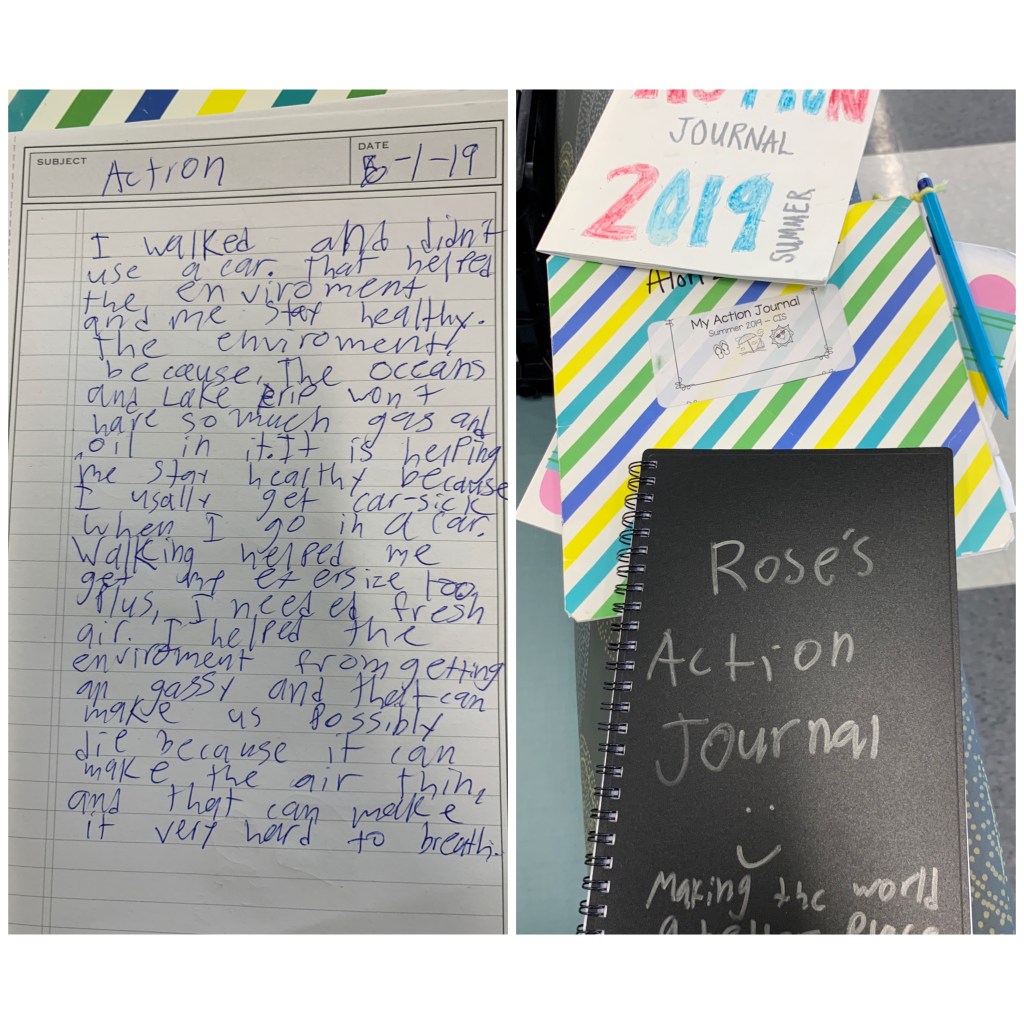 SUBJECT
Action
DATE
6-1-19
I walked and didn't
use a car. that helped
the enviroment
and me stay healthy.
The enviroment,
because, The occans
and Lake erie won't
have so much gas and
oil in it. It is helping
me stay healthy because
I usally get car-sick
when I go in a car.
Walking helped me
get my exersize too,
Plus, I needed fresh
air. I helped the
enviroment from getting
all gassy and that can
make us possibly
die because it can
make the air thin,
and that can make
it very hard to breath.
ACTION
JOURNAL
2019
SUMMER
My Action Journal
Summer 2019 - CIS
Rose's
Action
Journal
Making the world
a better place